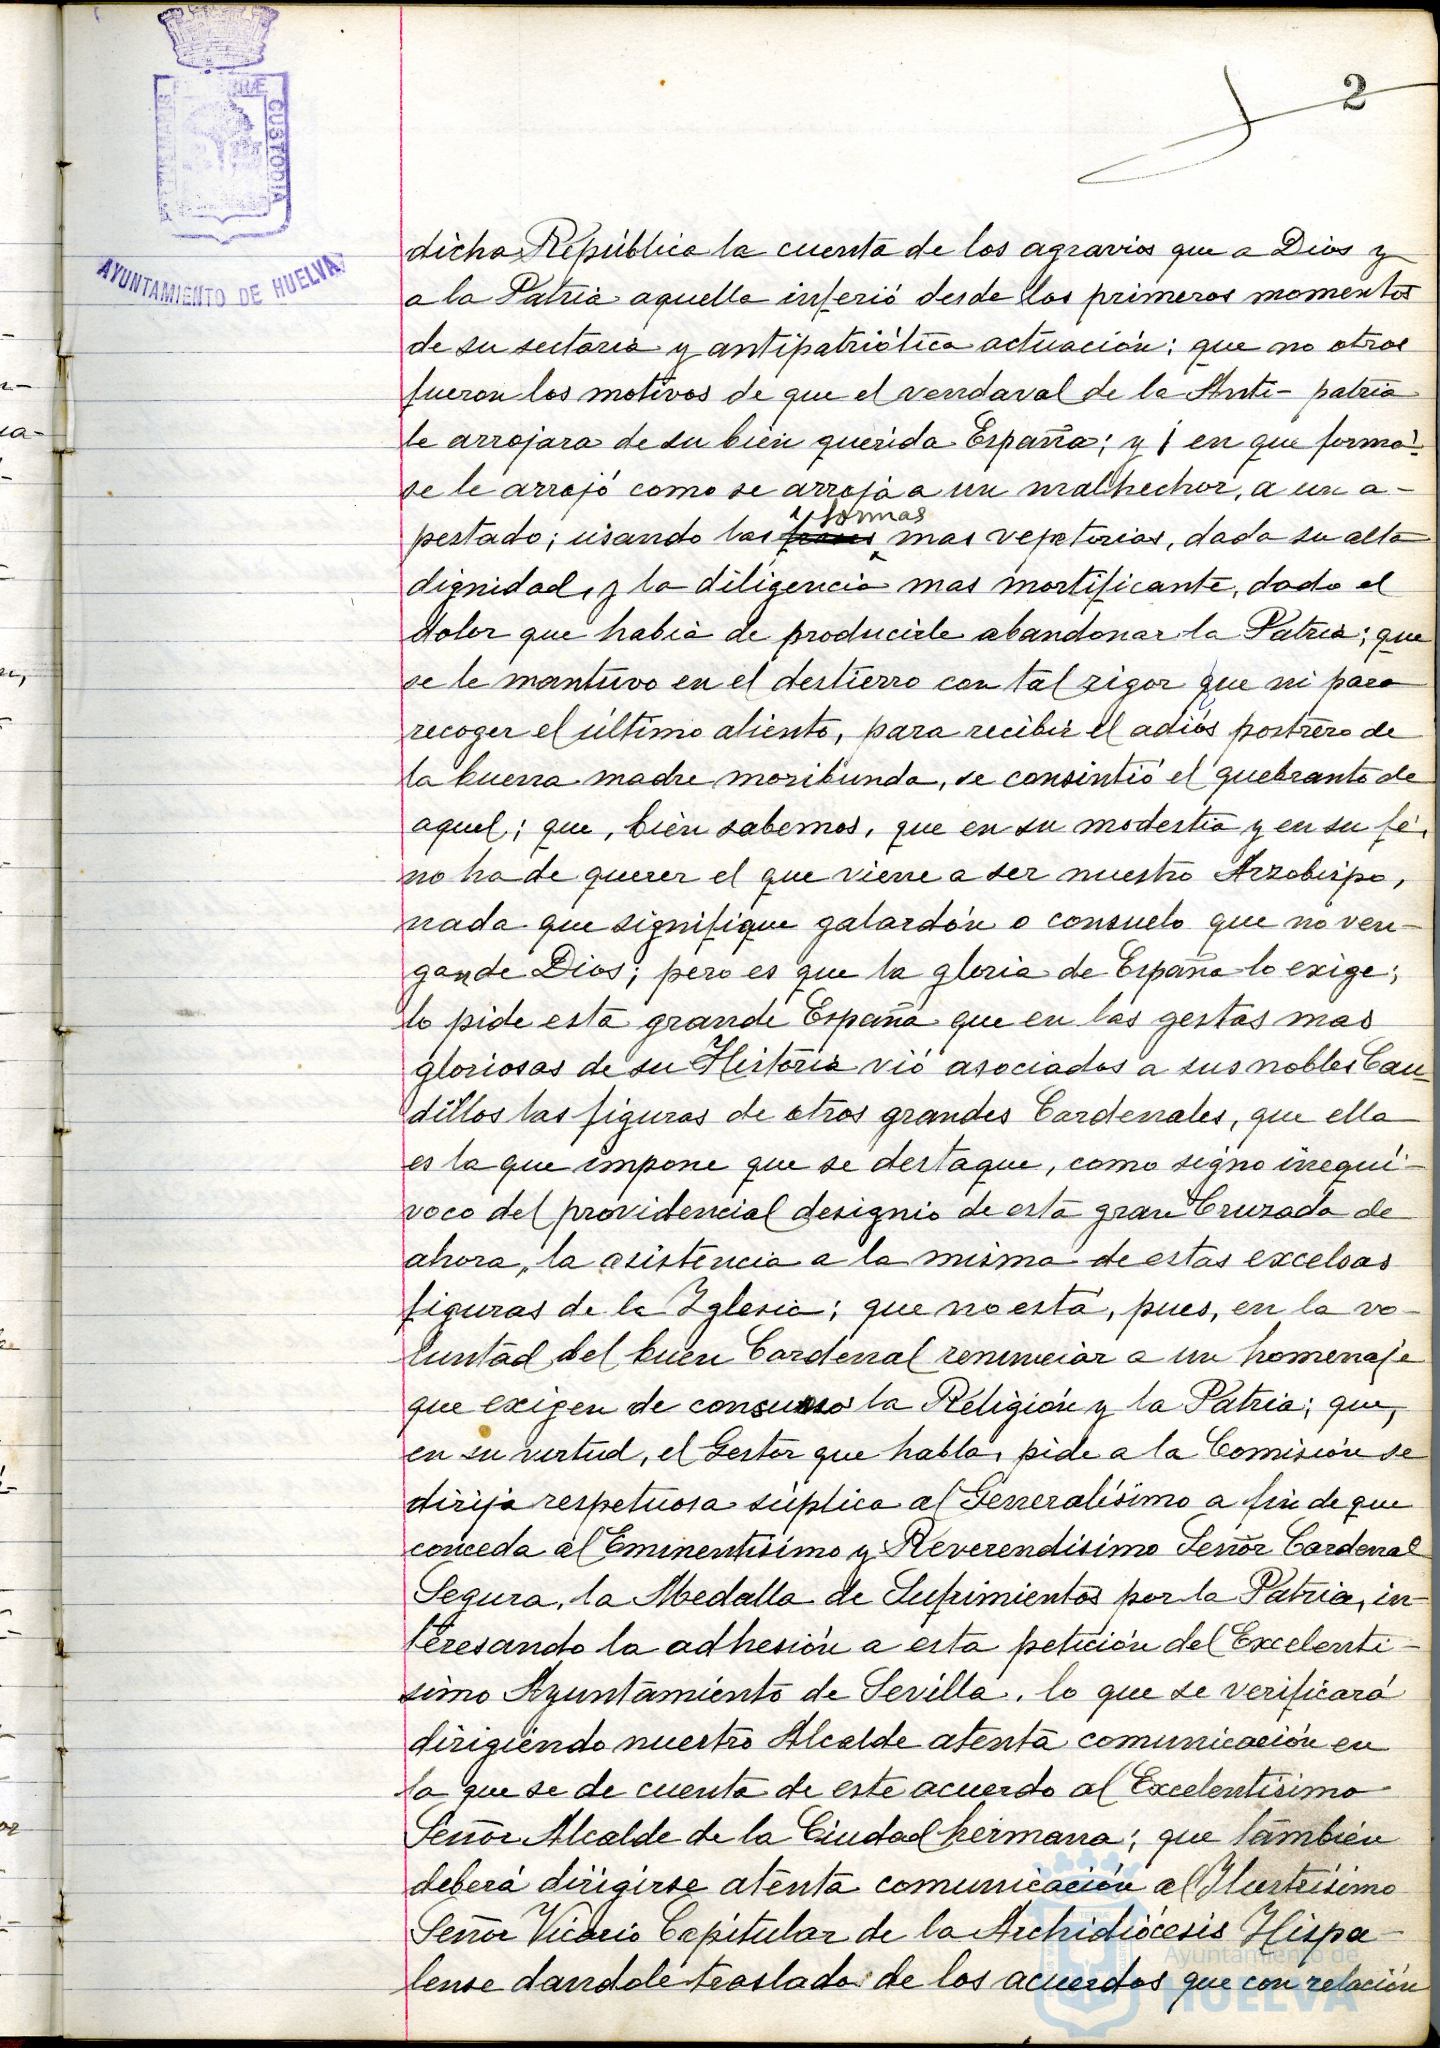 2
PORTUS MARIS ET TERRÆ CUSTODIA
AYUNTAMIENTO DE HUELVA
dicha República la cuenta de los agravios que a Dios y
a la Patria aquella inferió desde los primeros momentos
de su sectaria y antipatriótica actuación; que no otros
fueron los motivos de que el vendaval de la Anti- patria
le arrojara de su bien querida España; y ¡ en que forma!
se le arrojó como se arroja a un malhechor, a un a-
pestado; usando las formas mas vejatorias, dada su alta
dignidad, y la diligencia mas mortificante, dado el
dolor que había de producirle abandonar la Patria; que
se le mantuvo en el destierro con tal rigor que ni para
recoger el último aliento, para recibir el adiós postrero de
la buena madre moribunda, se consintió el quebranto de
aquel; que, bien sabemos, que en su modestia y en su fé,
no ha de querer el que viene a ser nuestro Arzobispo,
nada que signifique galardón o consuelo que no ven-
gan de Dios; pero es que la gloria de España lo exige;
lo pide esta grande España que en las gestas mas
gloriosas de su Historia vió asociados a sus nobles Cau-
dillos las figuras de otros grandes Cardenales, que ella
es la que impone que se destaque, como signo inequí-
voco del providencial designio de esta gran Cruzada de
ahora, la asistencia a la misma de estas excelsas
figuras de la Iglesia; que no está, pues, en la vo-
luntad del buen Cardenal renunciar a un homenaje
que exigen de consuno la Religión y la Patria; que,
en su virtud, el Gestor que habla, pide a la Comisión se
dirija respetuosa súplica al Generalísimo a fin de que
conceda al Eminentísimo y Reverendísimo Señor Cardenal
Segura, la Medalla de Sufrimientos por la Patria, in-
teresando la adhesión a esta petición del Excelentí-
simo Ayuntamiento de Sevilla, lo que se verificará
dirigiendo nuestro Alcalde atenta comunicación en
la que se de cuenta de este acuerdo al Excelentísimo
Señor Alcalde de la Ciudad hermana; que también
deberá dirigirse atenta comunicación al Ilustrísimo
Señor Vicario Capitular de la Archidiócesis Hispa-
lense dandole traslado de los acuerdos que con relación
Ayuntamiento de
HUELVA